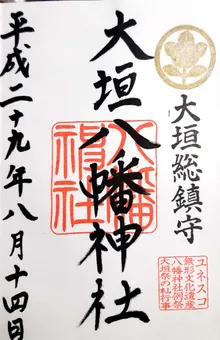 大垣総鎮守
ユネスコ
無形文化遺産
八幡神社例祭
大垣祭の軕行事
大垣八幡神社
八幡神社
平成二十九年八月十四日